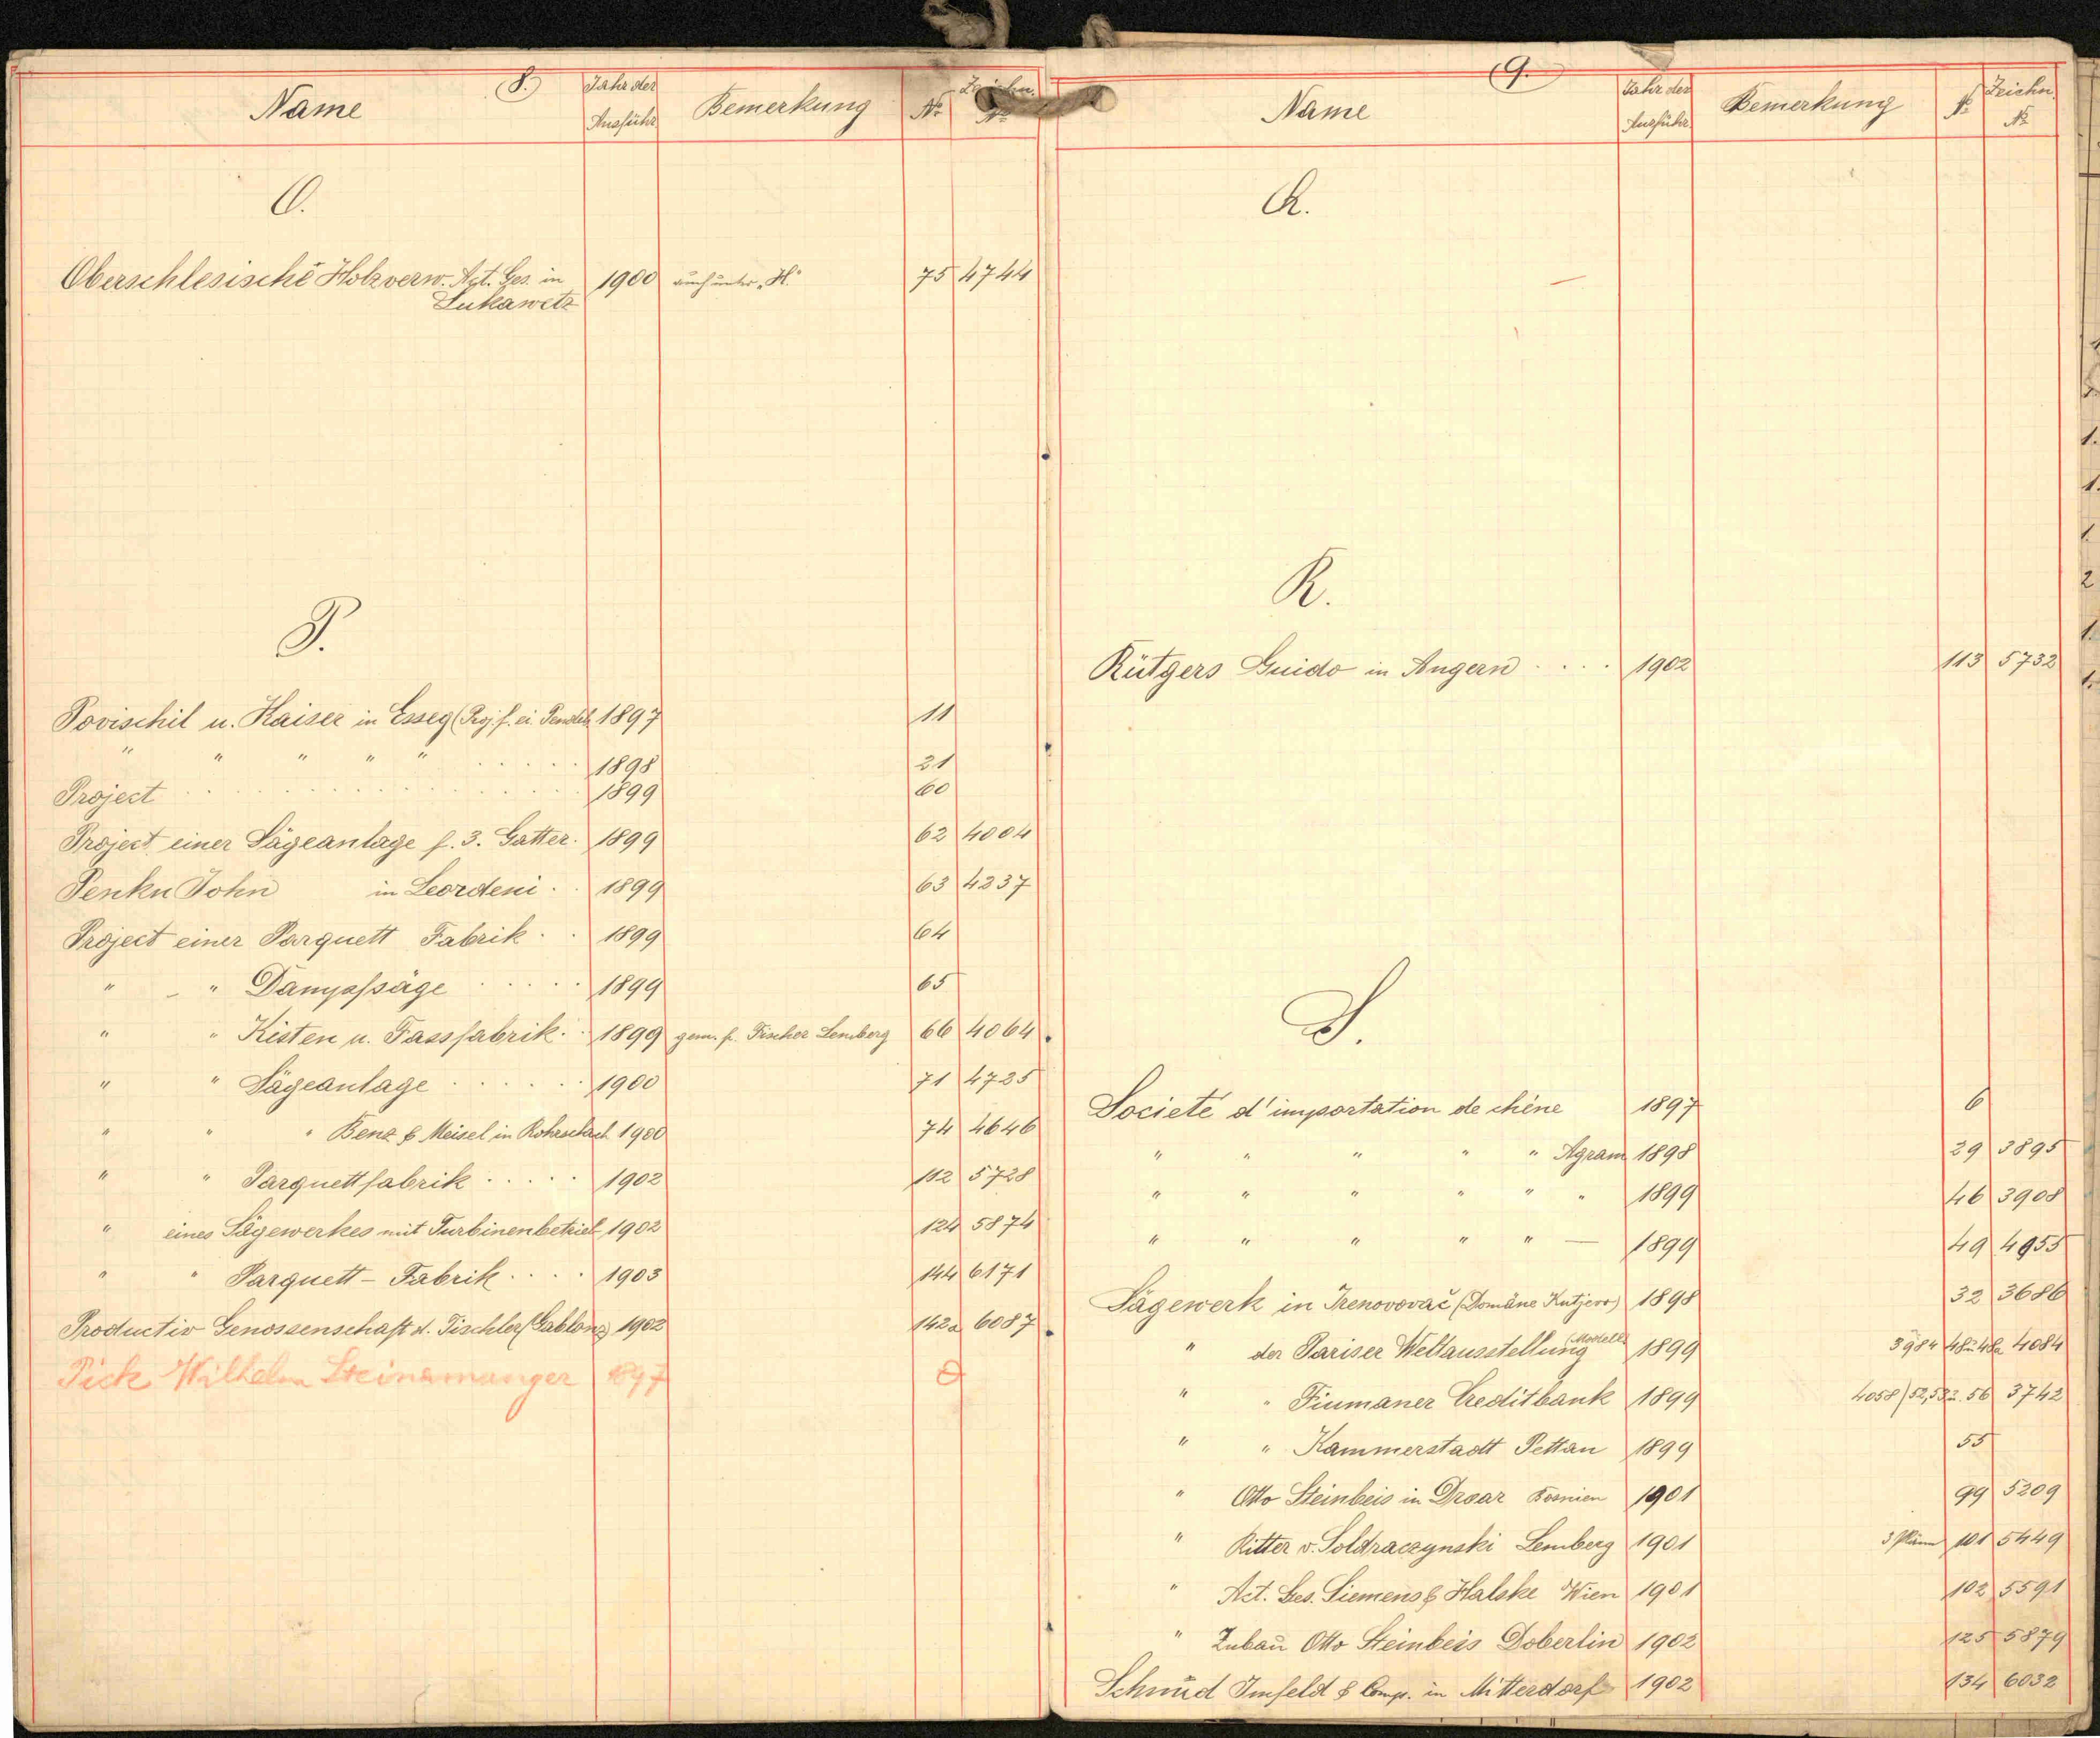 8.
Name Jahr der Ausführ. Bemerkung № Zeichn. №
O.
Oberschlesische Holzverw. Act. Ges. in 1900 auch unter „H." 75 4744
Lukawetz
P.
Povischil u. Kaiser in Esseg (Proj. f. ei. 1897 11
" " " " " . . . . . 1898 21
Project . . . . . . . . . . 1899 60
Project einer Sägeanlage f. 3. Gatter. 1899 62 4004
Penku John in Leordeni . . 1899 63 4237
Project einer Parquett Fabrik . . 1899 64
" " Dampfsäge . . . . . 1899 65
" " Kisten u. Fassfabrik . . 1899 gem. f. Fischer Lemberg 66 4064
" " Sägeanlage . . . . . . 1900 71 4725
" " " Benz & Meisel in Rohrschach 1900 74 4646
" " Parquettfabrik . . . . . 1902 112 5728
" eines Sägewerkes mit Turbinenbetrieb 1902 124 5874
" " Parquett-Fabrik . . . . 1903 144 6171
Productiv Genossenschaft d. Tischler (Gablonz) 1902 142a 6087
Pick Wilhelm Steinamanger 1897
9.
Name Jahr der Ausführ. Bemerkung № Zeichn. №
Q.
R.
Rütgers Guido in Angern . . . . 1902 113 5732
S.
Societé d'importation de chêne 1897 6
" " " " " Agram 1898 29 3895
" " " " " " 1899 46 3908
" " " " " — 1899 49 4955
Sägewerk in Trenovovač (Domäne Kutjevo) 1898 32 3686
" der Pariser Weltausstellung (Modell) 1899 3984 48 u 48a 4084
" " Fiumaner Creditbank 1899 4058 52, 53 u. 56 3742
" " Kammerstadt Pettau 1899 55
" Otto Steinbeis in Drvar Bosnien 1901 99 5209
" Ritter v. Soldraczynski Lemberg 1901 3 Pläne 101 5449
" Act. Ges. Siemens & Halske Wien 1901 102 5591
" Zubau Otto Steinbeis Doberlin 1902 125 5879
Schmid Imfeld & Comp. in Mitterdorf 1902 134 6032